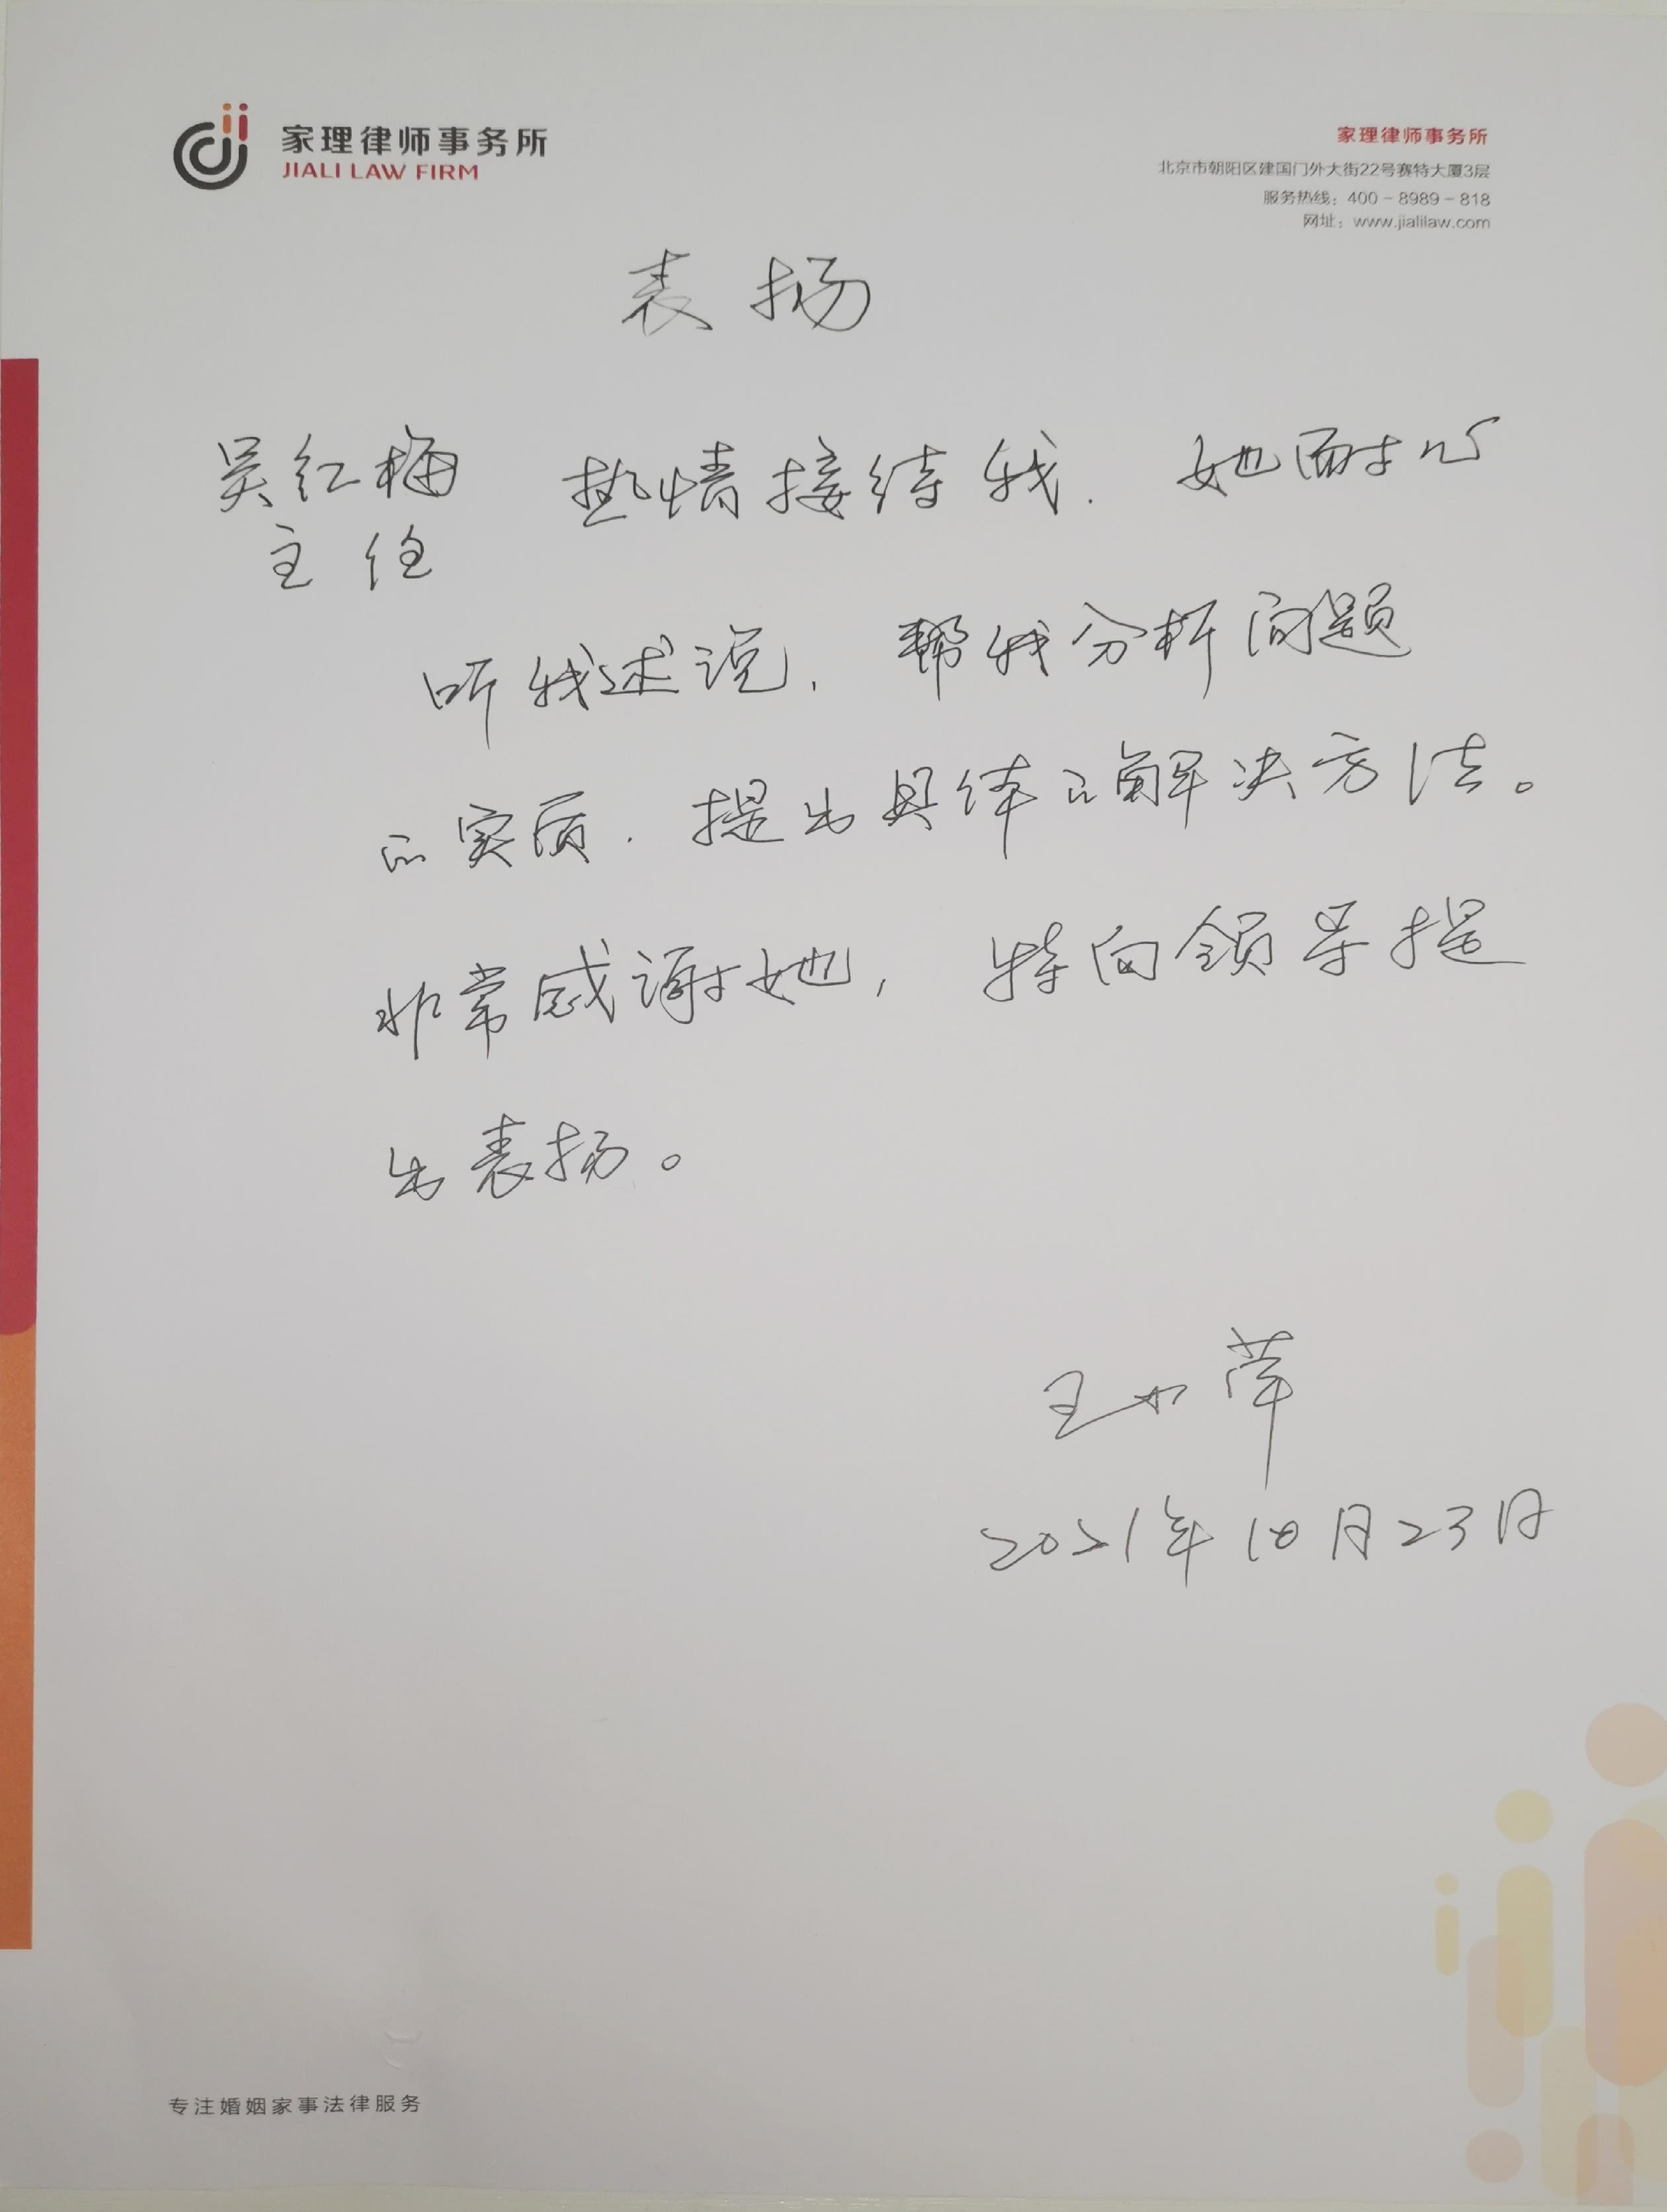 家理律师事务所
JIALI LAW FIRM
家理律师事务所
北京市朝阳区建国门外大街22号赛特大厦3层
服务热线：400-8989-818
网址：www.jialilaw.com
表扬
吴红梅 热情接待我. 她耐心
主任
听我述说, 帮我分析问题
的实质. 提出具体的解决方法。
非常感谢她, 特向领导提
出表扬。
王如苹
2021年10月23日
专注婚姻家事法律服务